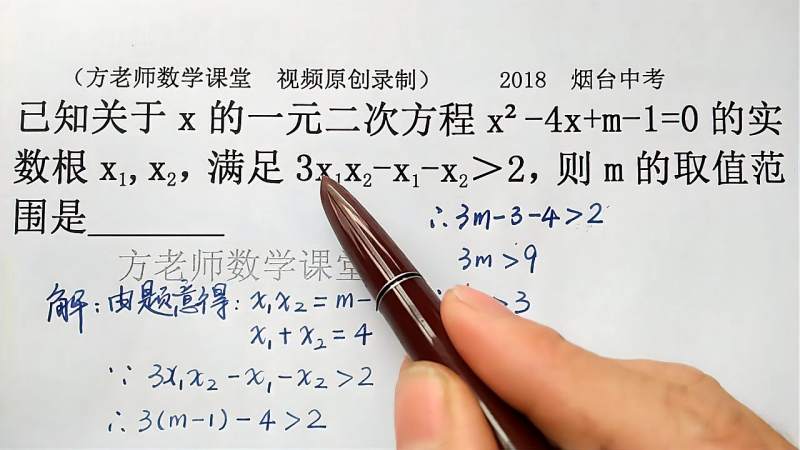 (方老师数学课堂 视频原创录制) 2018 烟台中考
已知关于 x 的一元二次方程 x²-4x+m-1=0 的实
数根 x₁, x₂, 满足 3x₁x₂-x₁-x₂>2, 则 m 的取值范
围是______
方老师数学课堂
解: 由题意得: x₁x₂ = m-
x₁ + x₂ = 4
∵ 3x₁x₂ - x₁ - x₂ > 2
∴ 3(m-1) - 4 > 2
∴ 3m-3-4 > 2
3m > 9
> 3